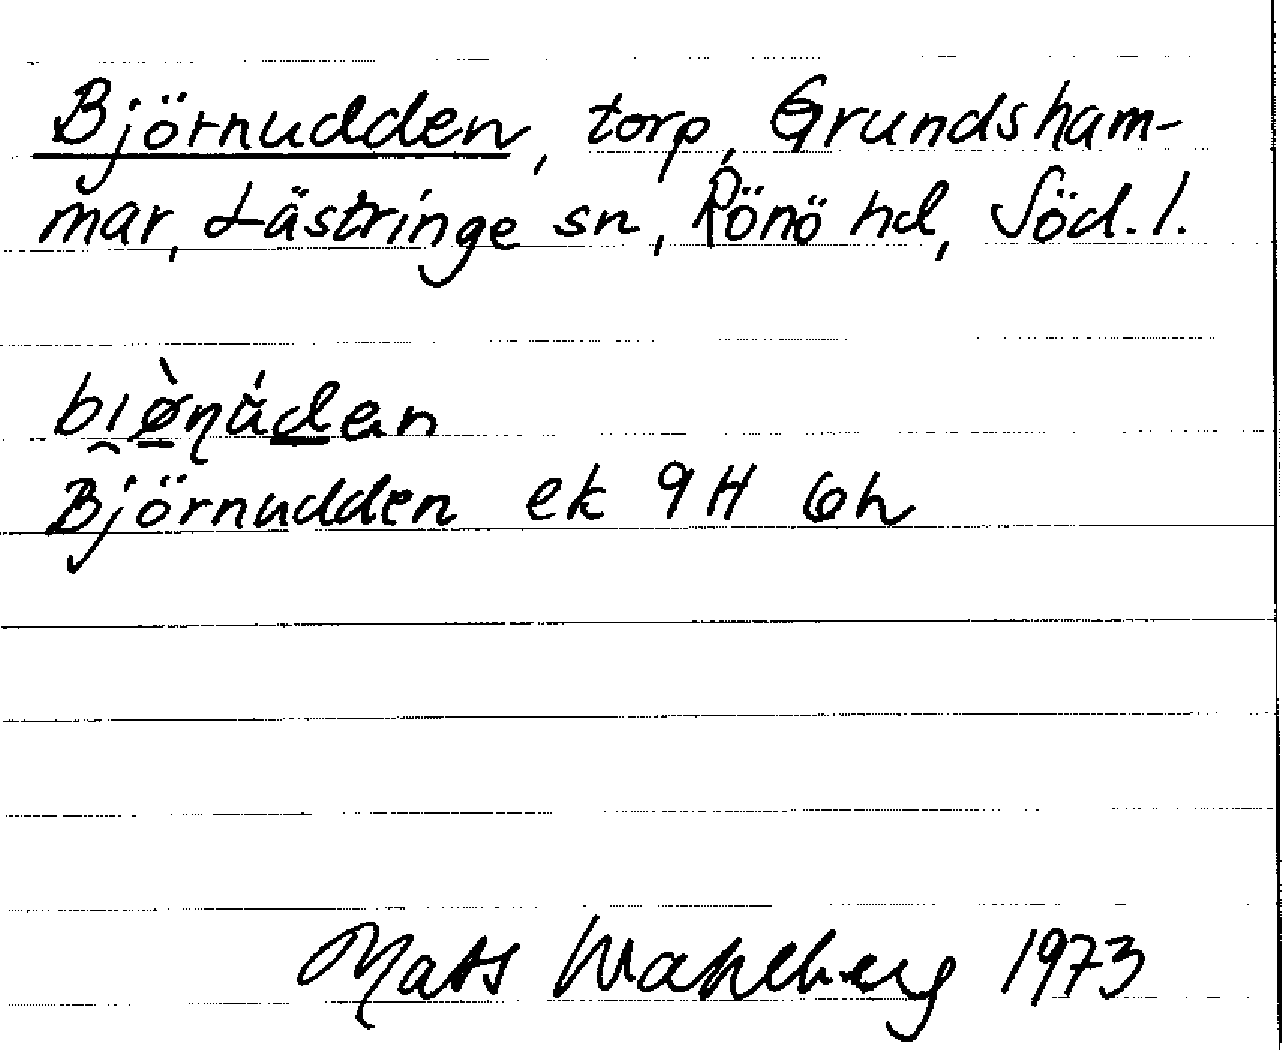 Björnudden, torp, Grundsham-
mar, Lästringe sn, Rönö hd, Söd. l.
bi̯ø̠̀ɳúd̠en
Björnudden ek 9H 6h
Mats Wahlberg 1973